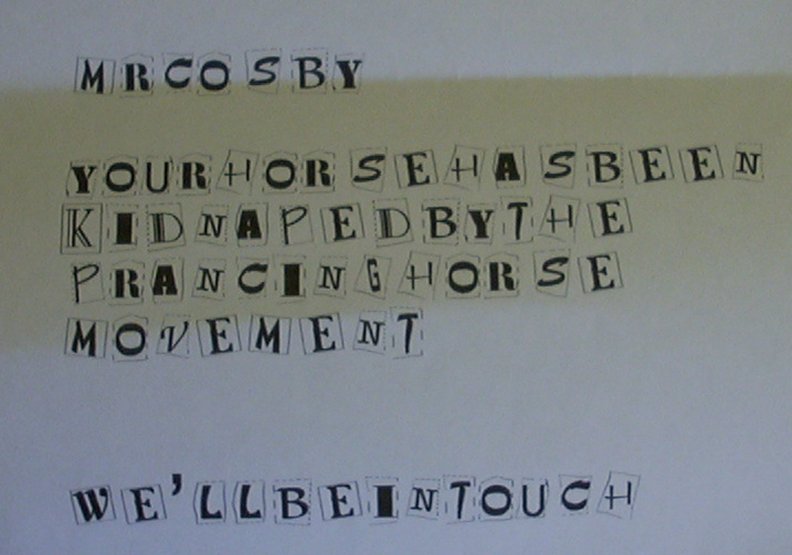 MRCOSBY
YOURHORSEHASBEEN
KIDNAPEDBYTHE
PRANCINGHORSE
MOVEMENT
WE'LLBEINTOUCH